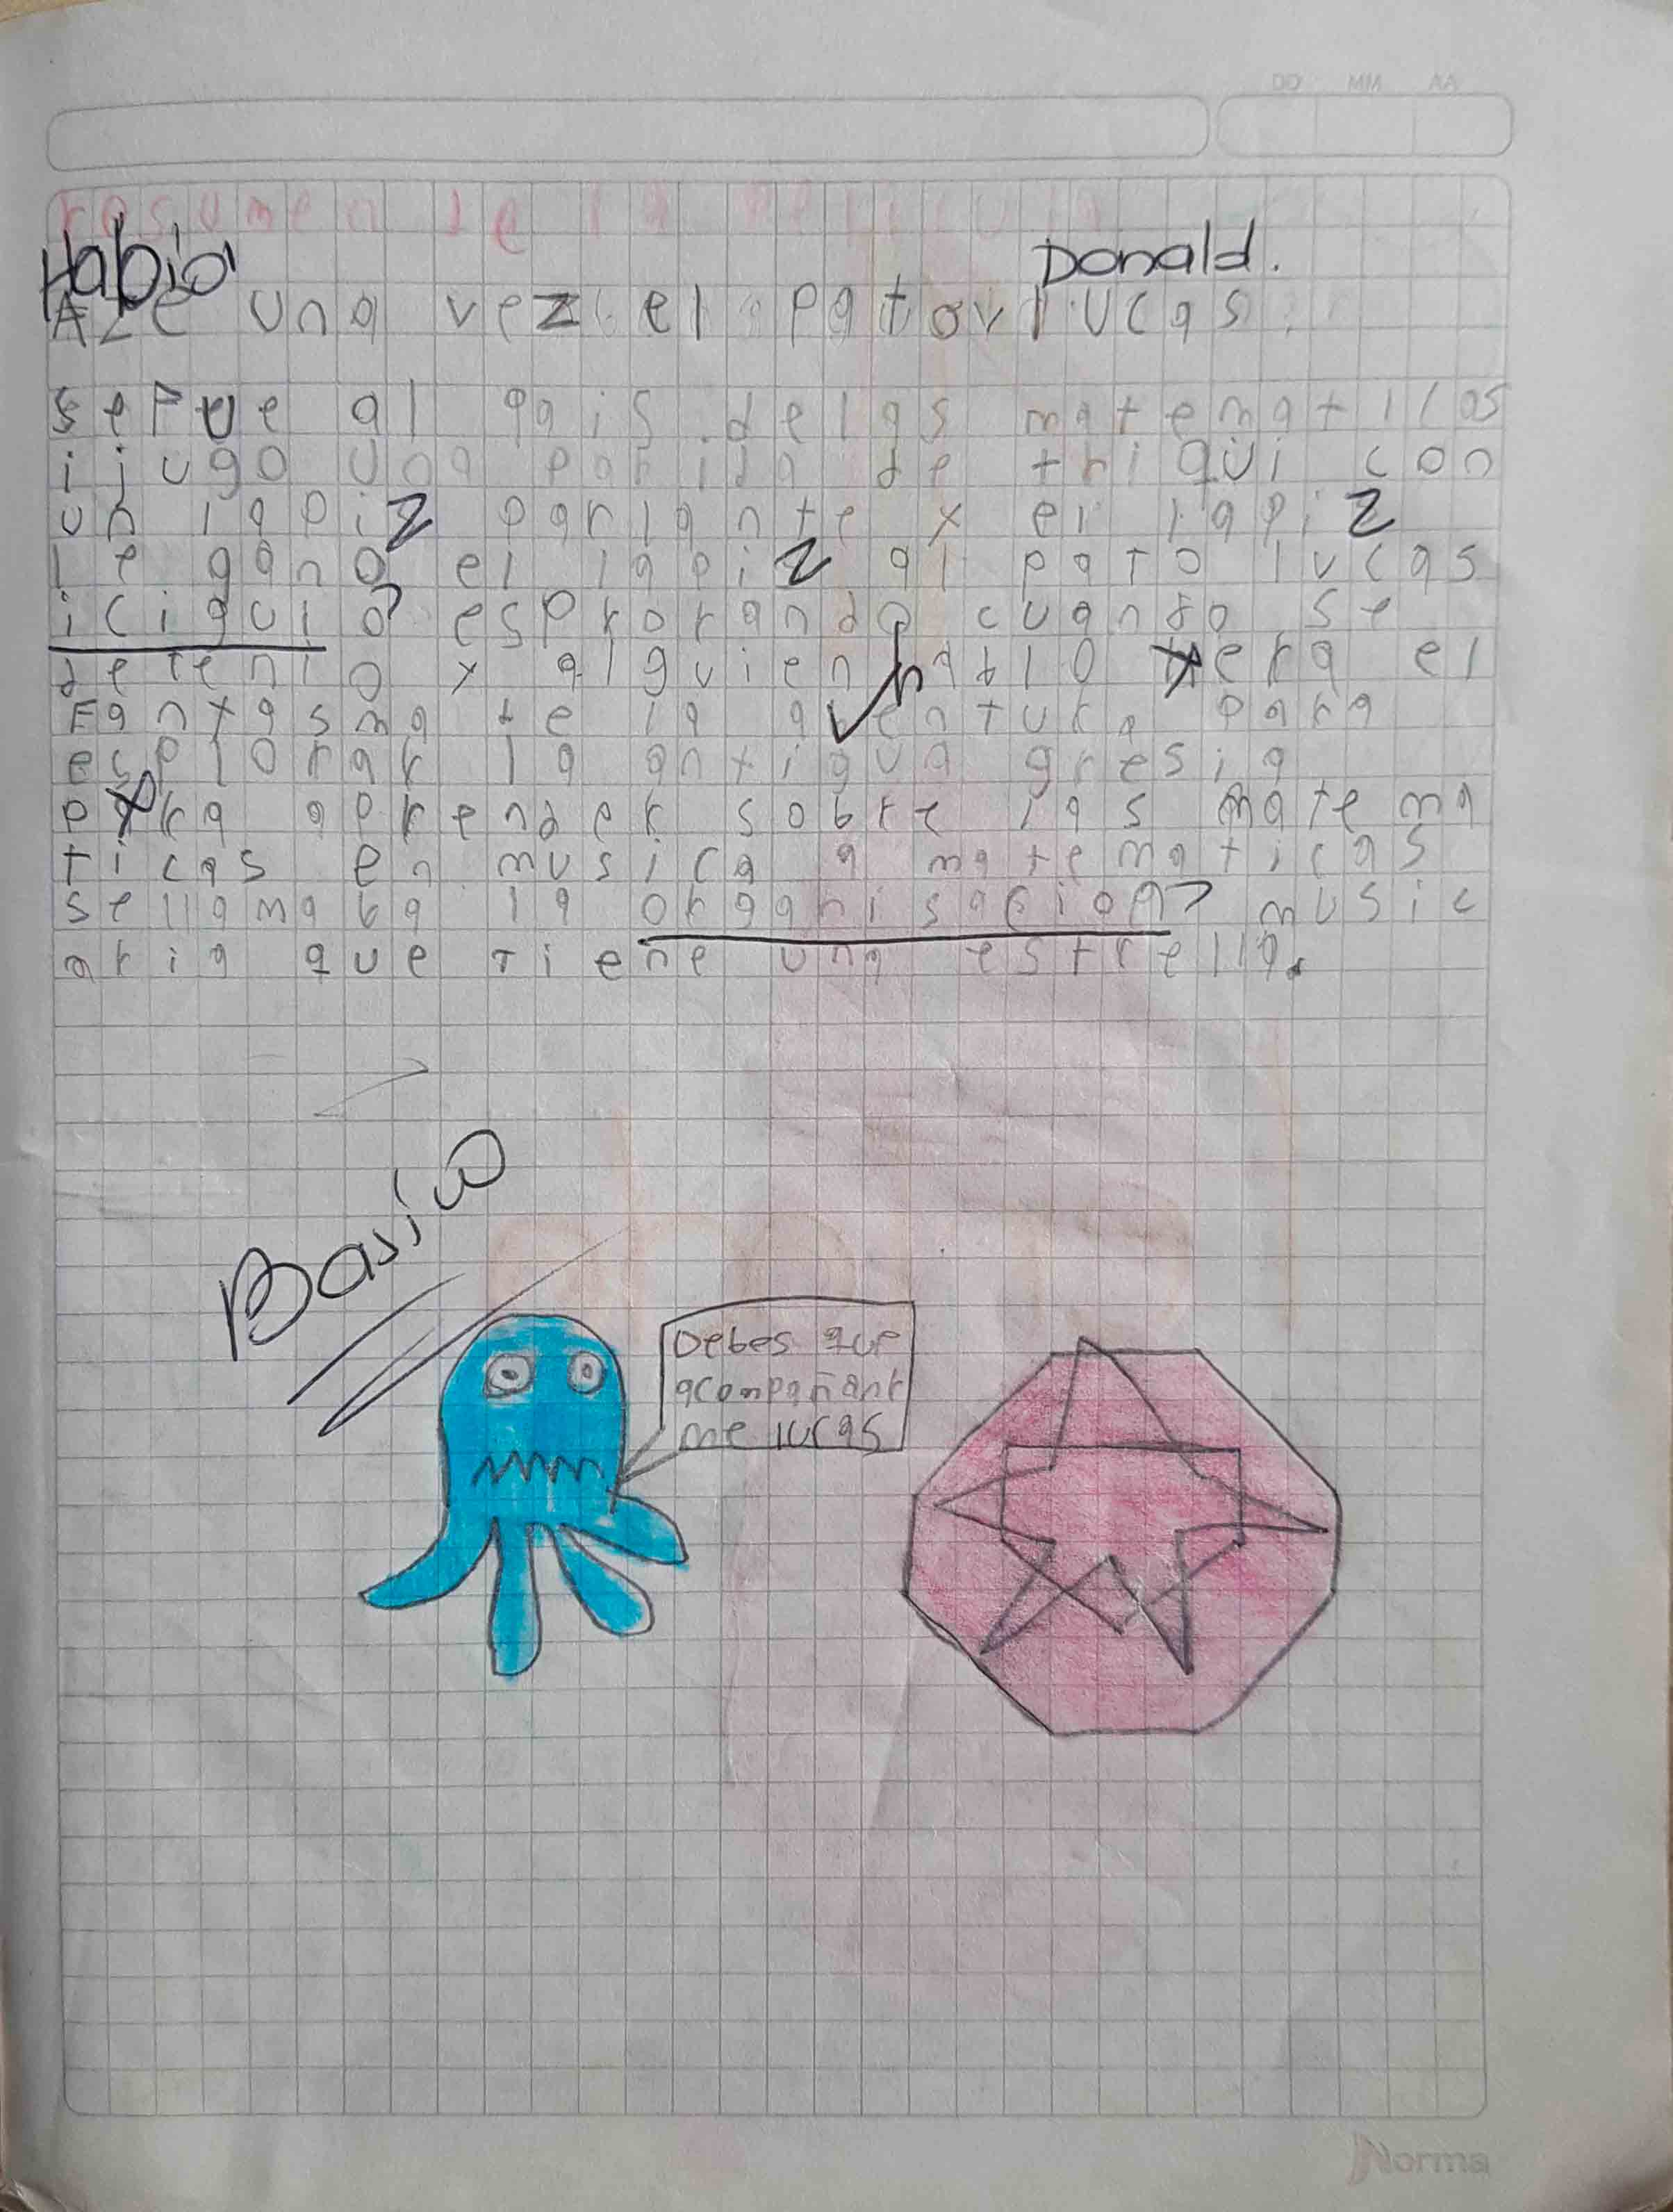 DD MM AA
resumen de la pelicula
Habia Donald.
Aze una vez el pato lucas
se fue al pais de las matematicas
i jugo una parida de triqui con
un lapiz parlante y el lapiz
le gano el lapiz al pato lucas
i ciguio? esprorando cuando se
detenio y alguien ablo era el
Fantasma de la aventura para
esplorar la antigua gresia
para aprender sobre las matema
ticas en musica a matematicas
se llamaba la organisacion? music
aria que tiene una estrella.
Basico
Debes que
acompañar
me lucas
Norma